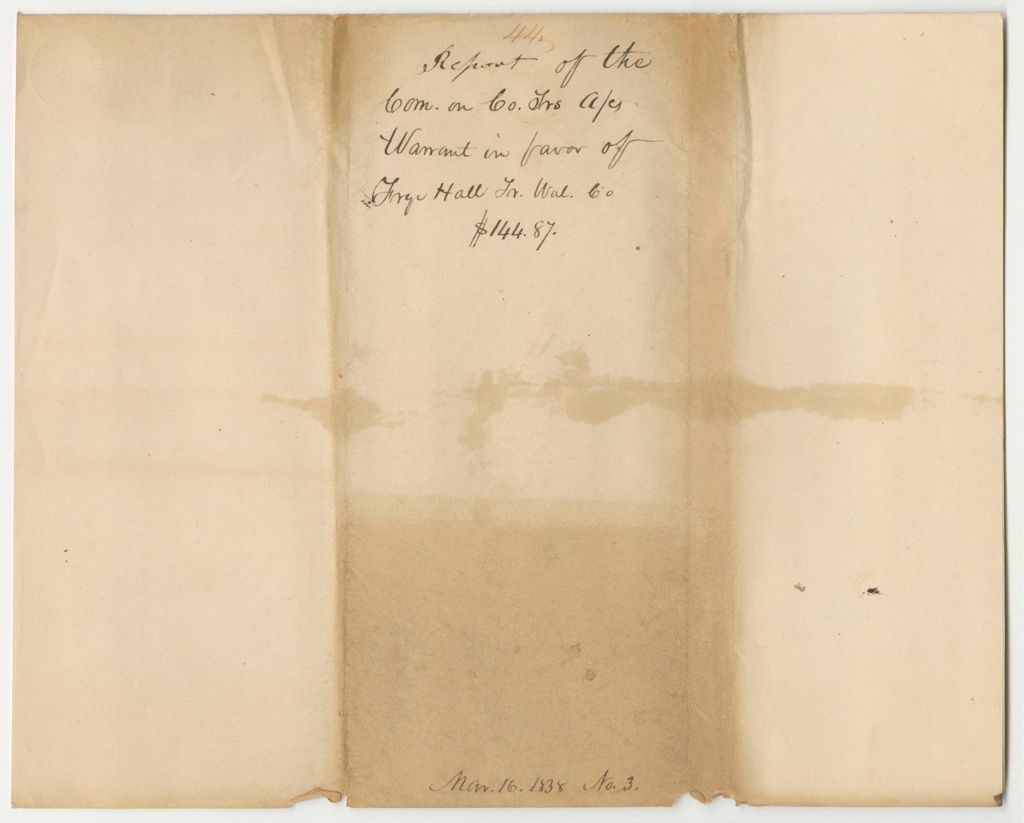 44
Report of the
Com. on Co. Trs A/cs
Warrant in favor of
Frye Hall Tr. Wal. Co
$144.87.
Mar. 16. 1838 No. 3.